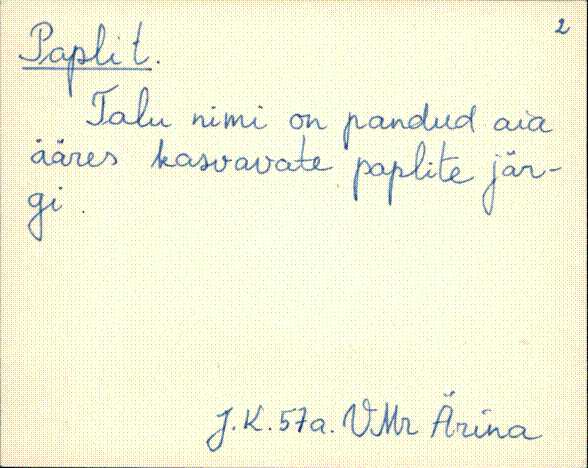 2
Paplit.
Talu nimi on pandud aia
ääres kasvavate paplite jär-
gi.
J.K. 57a. VMr Ärina